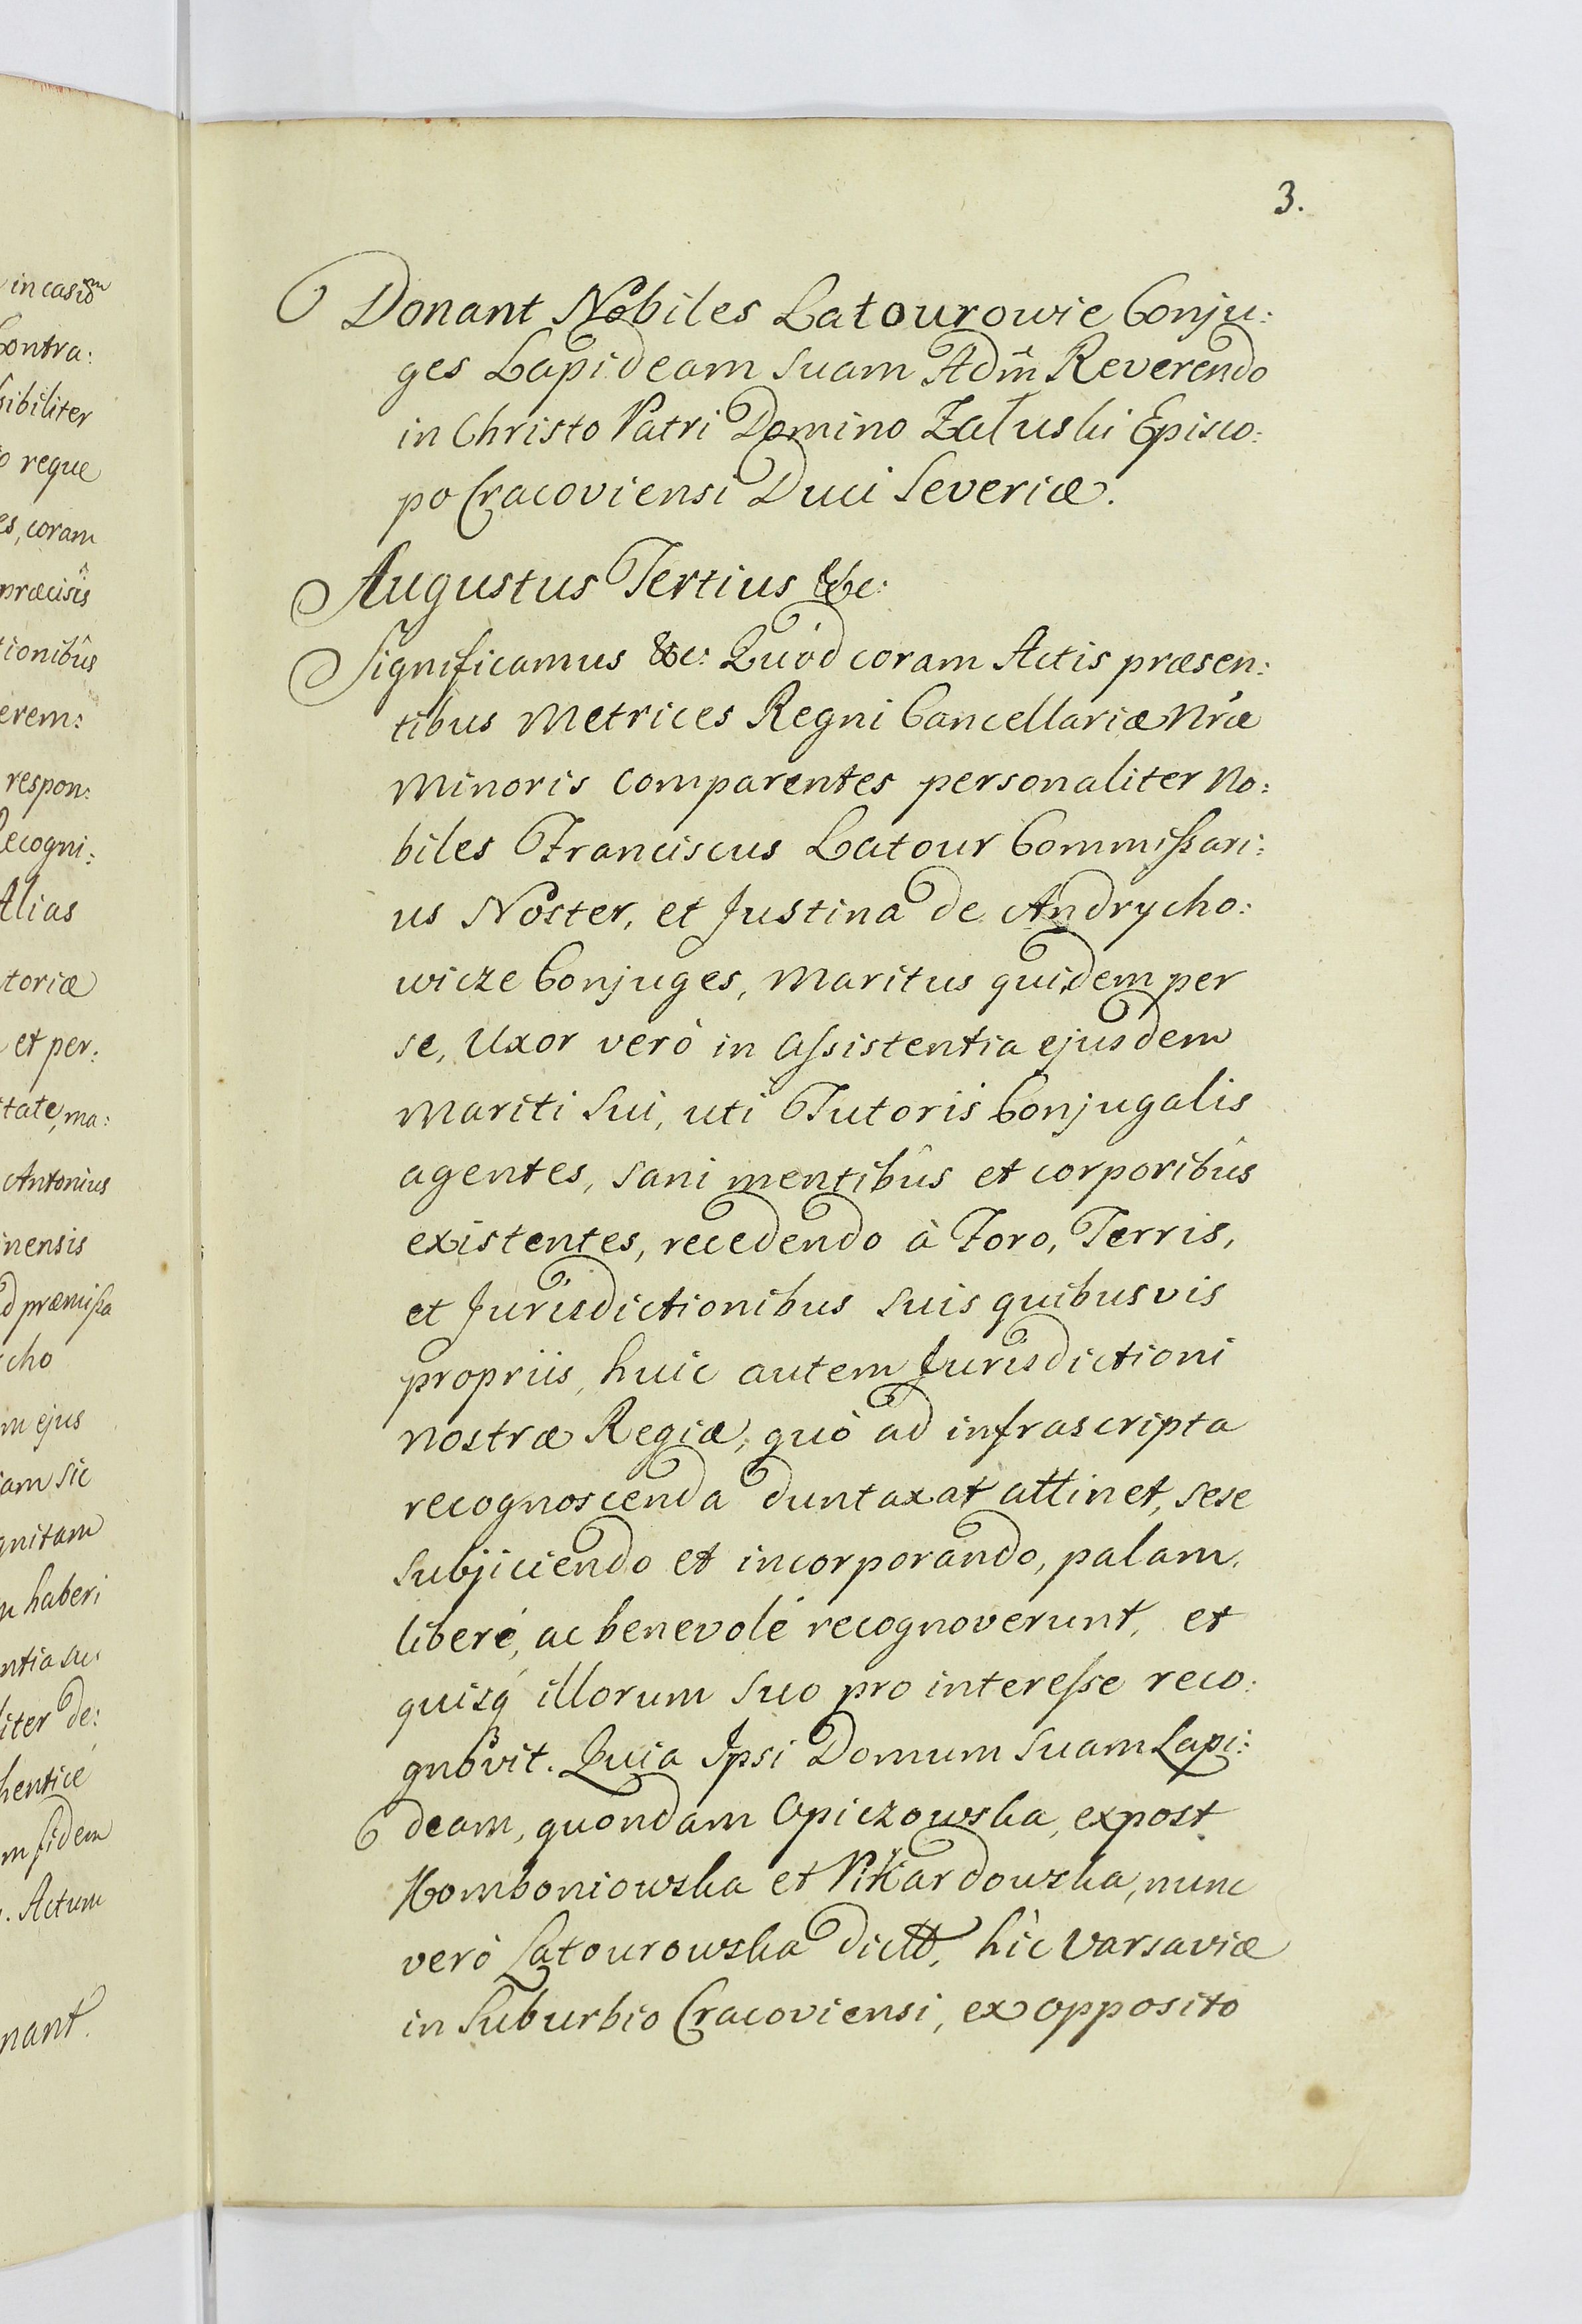 in casiom
Contra:
sibiliter
reque
es, coram
præcisis
tionibûs
erem:
respon:
Recogni:
Alias
toriæ
et per:
tate, ma:
Antonius
nensis
d præmissa
cho
m ejus
iam sic
gnitam
haberi
ntia su:
liter de:
hentice
m fidem
. Actum
nant.
3.
Donant Nobiles Latourowie Conju:
ges Lapideam suam Adm̃ Reverendo
in Christo Patri Domino Załuski Episco:
po Cracoviensi Duci Severiæ.
Augustus Tertius &c:
Significamus &c: Quòd coram Actis præsen:
tibus Metrices Regni Cancellariæ Nræ
Minoris comparentes personaliter No:
biles Franciscus Latour Commissari:
us Noster, et Justina de Andrycho:
wicze Conjuges, Maritus quidem per
se, Uxor verò in assistentia ejusdem
Mariti sui, uti Tutoris Conjugalis
agentes, sani mentibûs et corporibûs
existentes, recedendo à Foro, Terris,
et Jurisdictionibus suis quibusvis
propriis, huic autem Jurisdictioni
nostræ Regiæ, quò ad infrascripta
recognoscenda duntaxat attinet, sese
subjiciendo et incorporando, palam,
liberé, ac benevolé recognoverunt, et
quisq́ illorum suo pro interesse reco:
gnovit. Quia Ipsi Domum suam Lapi:
deam, quondam Opiczowska, expost
Homboniowska et Pikardowska, nunc
verò Latourowska dictt, hìc Varsaviæ
in Suburbio Cracoviensi, ex opposito